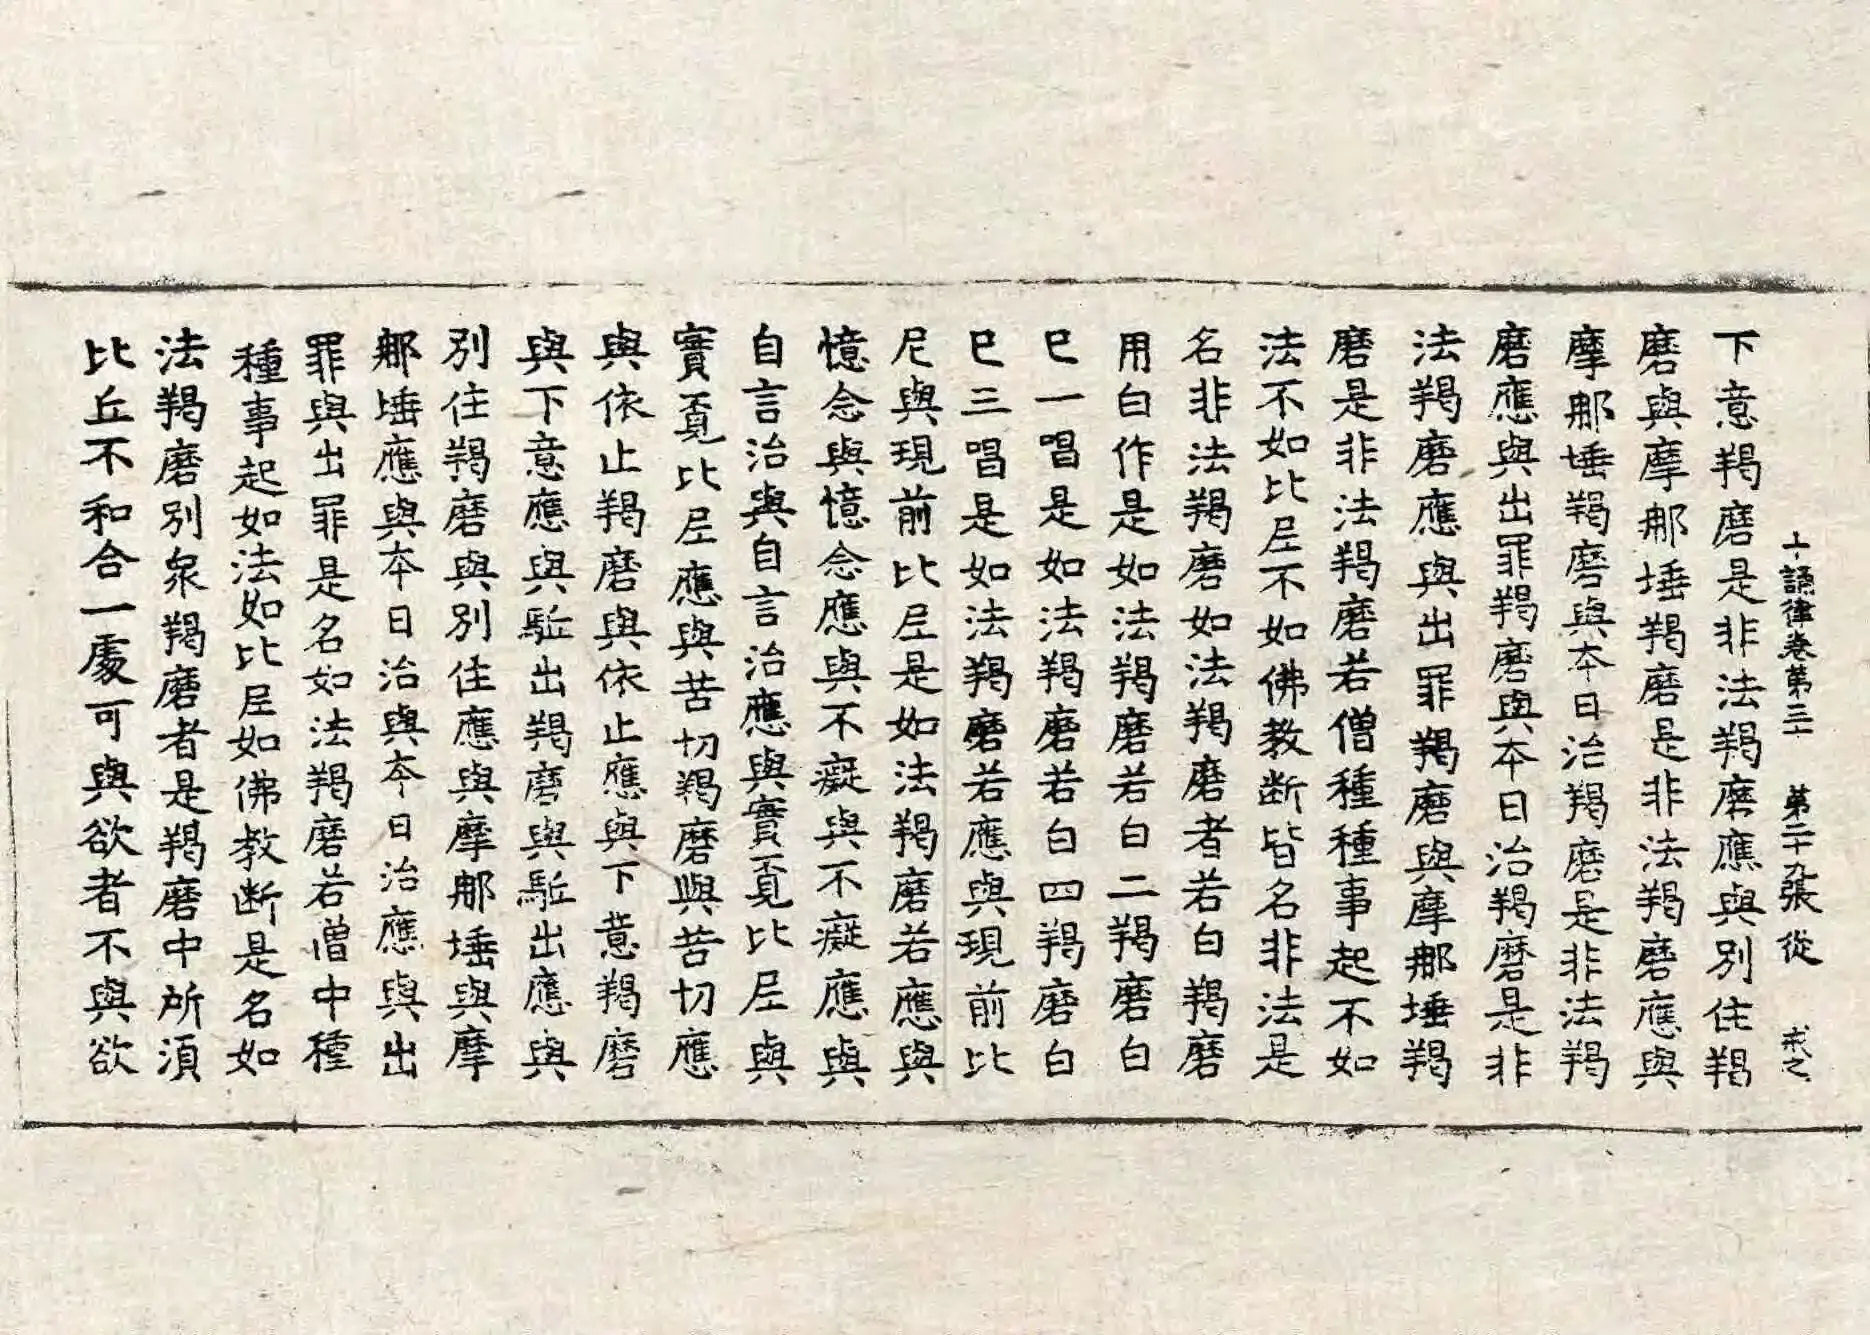 十誦律卷第三十　第二十九張　從　戒之
下意羯磨是非法羯磨應與別住羯
磨與摩那埵羯磨是非法羯磨應與
摩那埵羯磨與本日治羯磨是非法羯
磨應與出罪羯磨與本日治羯磨是非
法羯磨應與出罪羯磨與摩那埵羯
磨是非法羯磨若僧種種事起不如
法不如比尼不如佛教断皆名非法是
名非法羯磨如法羯磨者若白羯磨
用白作是如法羯磨若白二羯磨白
已一唱是如法羯磨若白四羯磨白
已三唱是如法羯磨若應與現前比
尼與現前比尼是如法羯磨若應與
憶念與憶念應與不癡與不癡應與
自言治與自言治應與實覓比尼與
實覓比尼應與苦切羯磨與苦切應
與依止羯磨與依止應與下意羯磨
與下意應與駈出羯磨與駈出應與
別住羯磨與別住應與摩那埵與摩
那埵應與本日治與本日治應與出
罪與出罪是名如法羯磨若僧中種
種事起如法如比尼如佛教断是名如
法羯磨別衆羯磨者是羯磨中所須
比丘不和合一處可與欲者不與欲